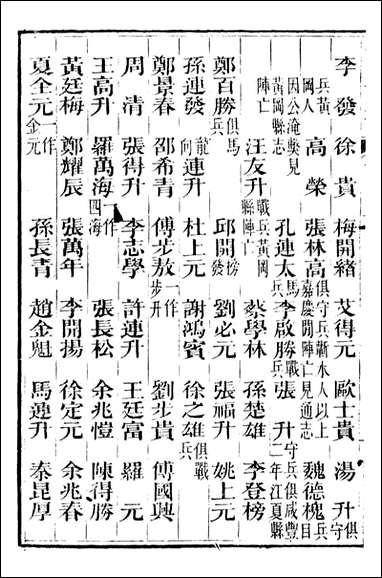 李發 徐貴 梅開緒 艾得元 歐士貴 湯升俱守
兵黃岡人 高榮 張林高俱守兵蘄水人以上嘉慶閒陣亡見通志 魏德槐兵目
因公淹斃見黃岡縣志 孔連太馬兵 李啟勝戰兵 張升守兵俱咸豐二年江夏縣
陣亡 汪友升戰兵黃岡縣陣亡 蔡學林 孫楚雄 李登榜
鄭百勝俱馬兵 邱開榜發 劉必元 張福升 姚上元
孫連發 龍向連升 杜上元 謝鴻賓 徐之雄俱戰兵
鄭景春 邵希青 傅步敖一作步升 劉步貴 傅國興
周清 張得升 李志學 許連升 王廷富 羅元
王高升 羅萬海一作四海 張長松 余兆愷 陳得勝
黃廷梅 鄭耀辰 張萬年 李開揚 徐定元 余兆春
夏全元一作金元 孫長青 趙金魁 馬連升 秦昆厚